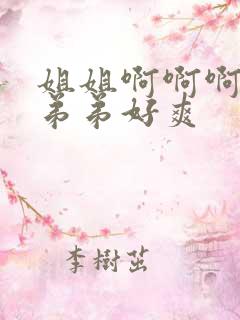 姐姐啊啊啊
弟弟好爽
李樹茁